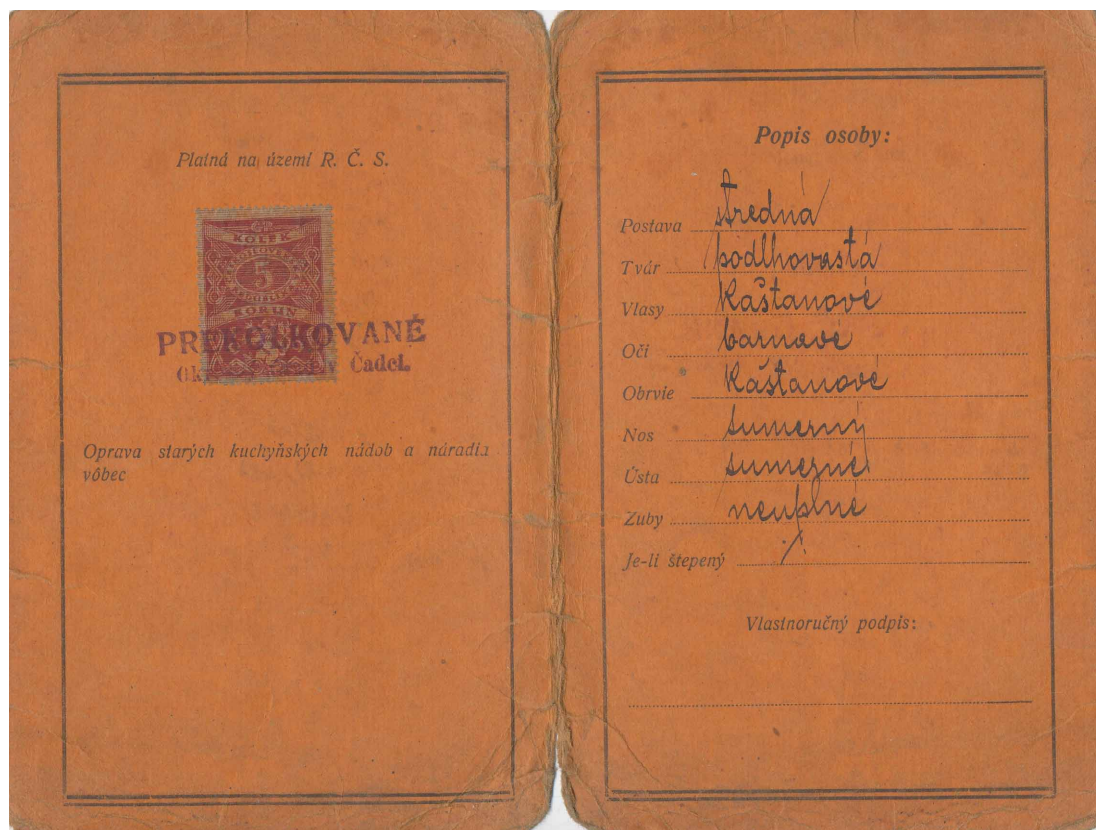 Platná na území R. Č. S.
KOLEK
5
KORUN
PREKOLKOVANÉ
Čadci.
Oprava starých kuchyňských nádob a náradia
vôbec
Popis osoby:
Postava stredná
Tvár podlhovastá
Vlasy kaštanové
Oči barnavé
Obrvie kaštanové
Nos sumerný
Ústa sumerné
Zuby neuplné
Je-li štepený
Vlastnoručný podpis: